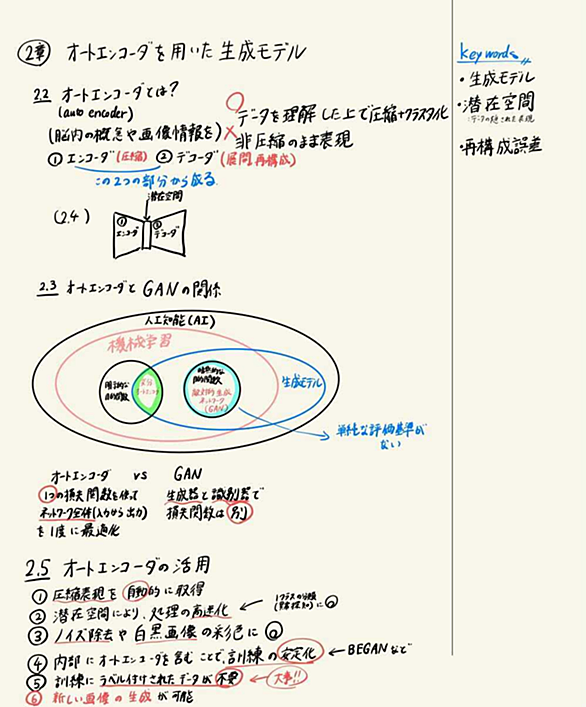 2章 オートエンコーダを用いた生成モデル
2.2 オートエンコーダとは?
(auto encoder)
(脳内の概念や画像情報を)
○データを理解した上で圧縮+クラスタ化
×非圧縮のまま表現
① エンコーダ(圧縮) ② デコーダ(展開 再構成)
この2つの部分から成る
潜在空間
(2.4)
① エンコーダ
② デコーダ
2.3 オートエンコーダとGANの関係
人工知能(AI)
機械学習
目的関数
目的関数
敵対的生成
ネットワーク
(GAN)
生成モデル
単純な評価基準が
ない
オートエンコーダ vs GAN
1つの損失関数を使って
ネットワーク全体(入力から出力)
を1度に最適化
生成器と識別器で
損失関数は別
2.5 オートエンコーダの活用
① 圧縮表現を自動的に取得
② 潜在空間により、処理の高速化 ← 1クラスの分類
(異常検知)に◎
③ ノイズ除去や白黒画像の彩色に◎
④ 内部にオートエンコーダを含むことで、訓練の安定化 ← BEGANなど
⑤ 訓練にラベル付けされたデータが不要 ← 大事!!
⑥ 新しい画像の生成が可能
key words
・生成モデル
・潜在空間
・再構成誤差